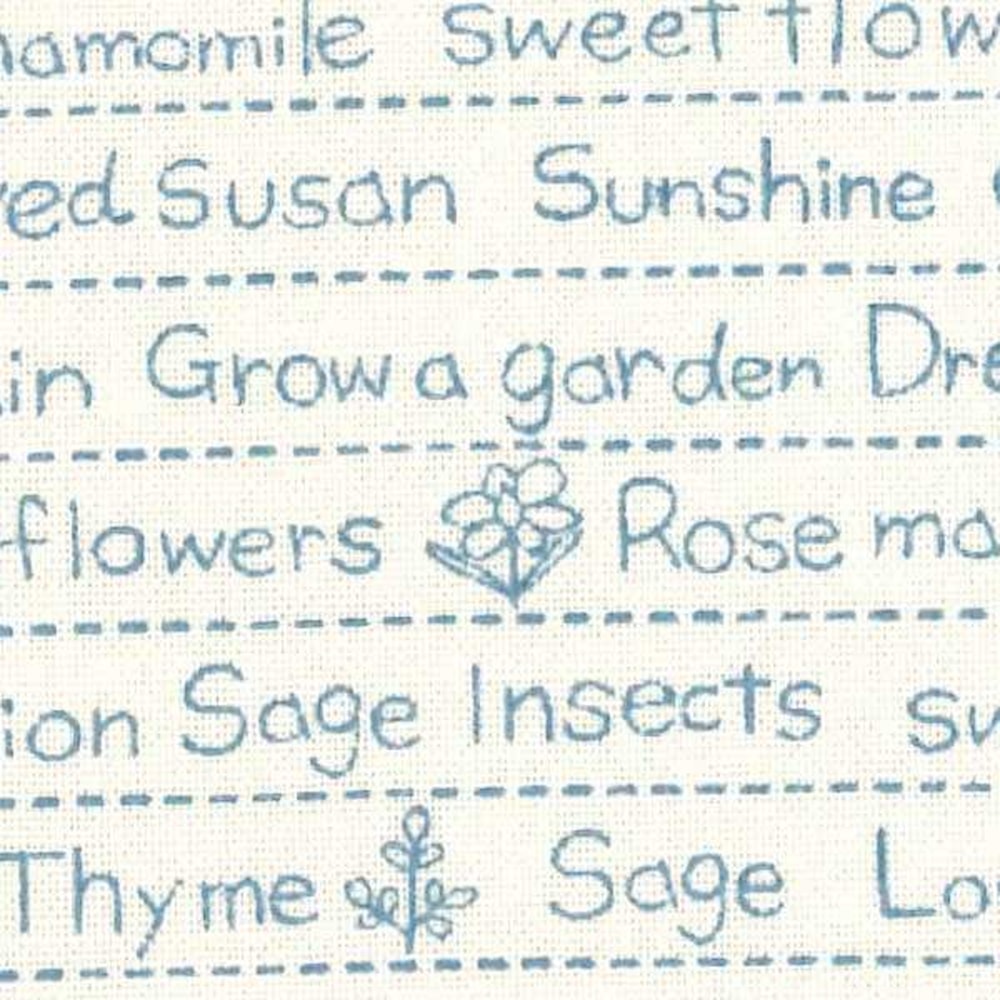 hamomile sweet flow
yed Susan Sunshine
in Grow a garden Dre
flowers Rose ma
ion Sage Insects sw
Thyme Sage La